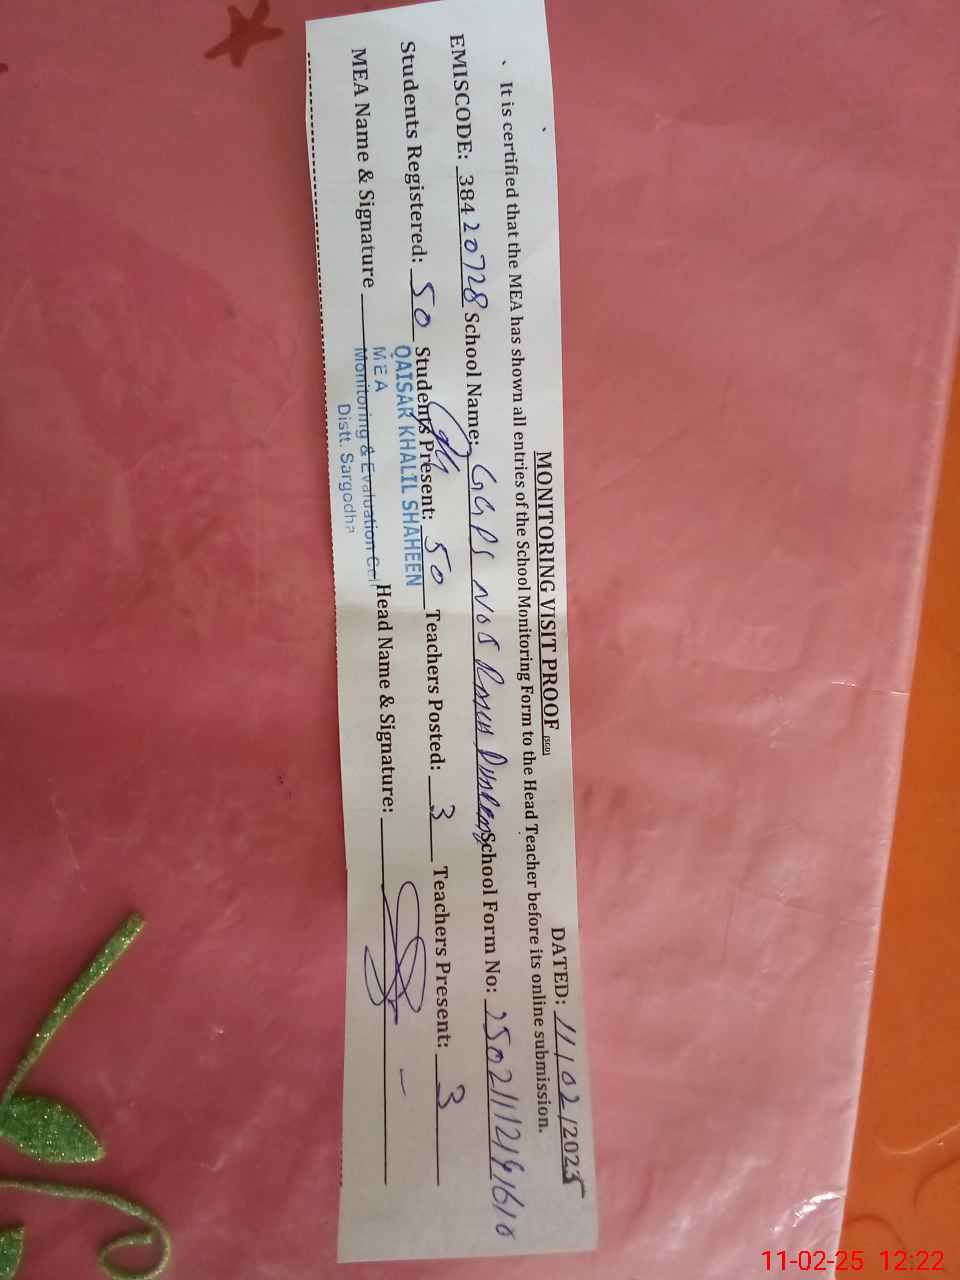 MONITORING VISIT PROOF (SGD) DATED: 11/02/2025
It is certified that the MEA has shown all entries of the School Monitoring Form to the Head Teacher before its online submission.
EMISCODE: 38420728 School Name: GGPS No 5 School Form No:
Students Registered: 50 Students Present: 50 Teachers Posted: 3 Teachers Present: 3
MEA Name & Signature Head Name & Signature:
QAISAR KHALIL SHAHEEN
MEA
Monitoring & Evaluation Cell
Distt. Sargodha
11-02-25 12:22